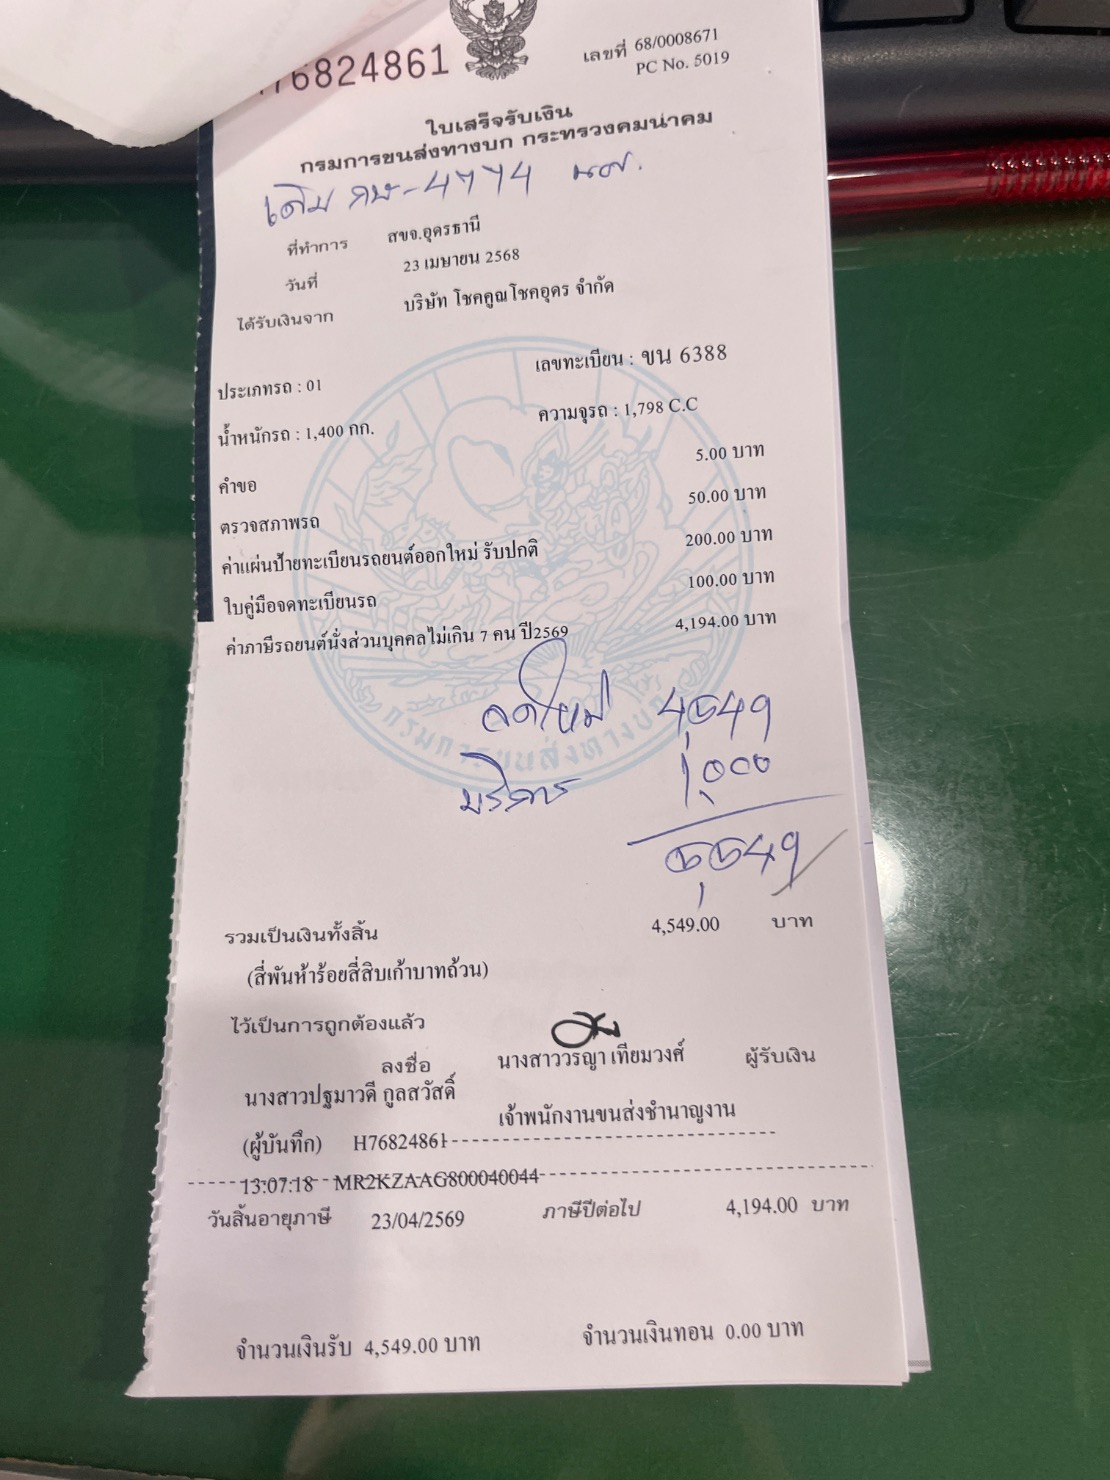 76824861
เลขที่ 68/0008671
PC No. 5019
ใบเสร็จรับเงิน
กรมการขนส่งทางบก กระทรวงคมนาคม
เดิม กษ-4774
ที่ทำการ สขจ.อุดรธานี
วันที่ 23 เมษายน 2568
ได้รับเงินจาก บริษัท โชคคูณโชคอุดร จำกัด
ประเภทรถ : 01 เลขทะเบียน : ขน 6388
น้ำหนักรถ : 1,400 กก. ความจุรถ : 1,798 C.C
คำขอ 5.00 บาท
ตรวจสภาพรถ 50.00 บาท
ค่าแผ่นป้ายทะเบียนรถยนต์ออกใหม่ รับปกติ 200.00 บาท
ใบคู่มือจดทะเบียนรถ 100.00 บาท
ค่าภาษีรถยนต์นั่งส่วนบุคคลไม่เกิน 7 คน ปี2569 4,194.00 บาท
จดใหม่ 4,549
บริการ 1,000
5,549
กรมการขนส่งทางบก
รวมเป็นเงินทั้งสิ้น 4,549.00 บาท
(สี่พันห้าร้อยสี่สิบเก้าบาทถ้วน)
ไว้เป็นการถูกต้องแล้ว
ลงชื่อ นางสาววรญา เทียมวงศ์ ผู้รับเงิน
นางสาวปฐมาวดี กูลสวัสดิ์
เจ้าพนักงานขนส่งชำนาญงาน
(ผู้บันทึก) H76824861
13:07:18 MR2KZAAG800040044
วันสิ้นอายุภาษี 23/04/2569 ภาษีปีต่อไป 4,194.00 บาท
จำนวนเงินรับ 4,549.00 บาท จำนวนเงินทอน 0.00 บาท